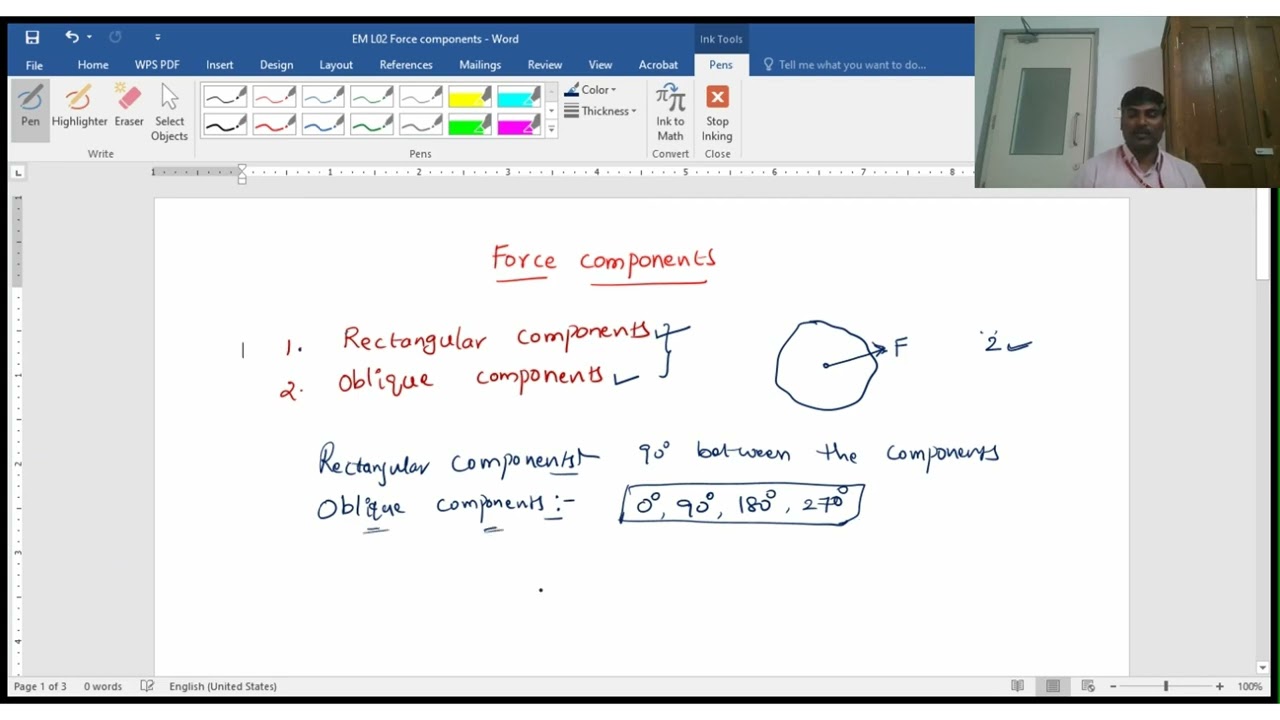 EM L02 Force components - Word
Ink Tools
File Home WPS PDF Insert Design Layout References Mailings Review View Acrobat Pens Tell me what you want to do...
Pen Highlighter Eraser Select Objects
Color
Thickness
Ink to Math
Stop Inking
Write Pens Convert Close
1 1 2 3 4 5 6 7 8
Force components
1. Rectangular components
2. Oblique components
F
2
Rectangular components 90° between the components
Oblique components :- 0°, 90°, 180°, 270°
1
1
2
3
4
Page 1 of 3 0 words English (United States) 100%